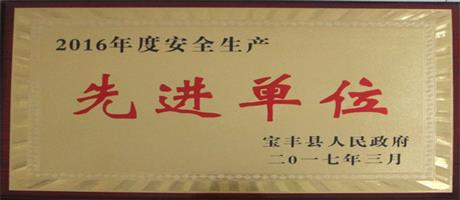 2016年度安全生产
先进单位
宝丰县人民政府
二〇一七年三月